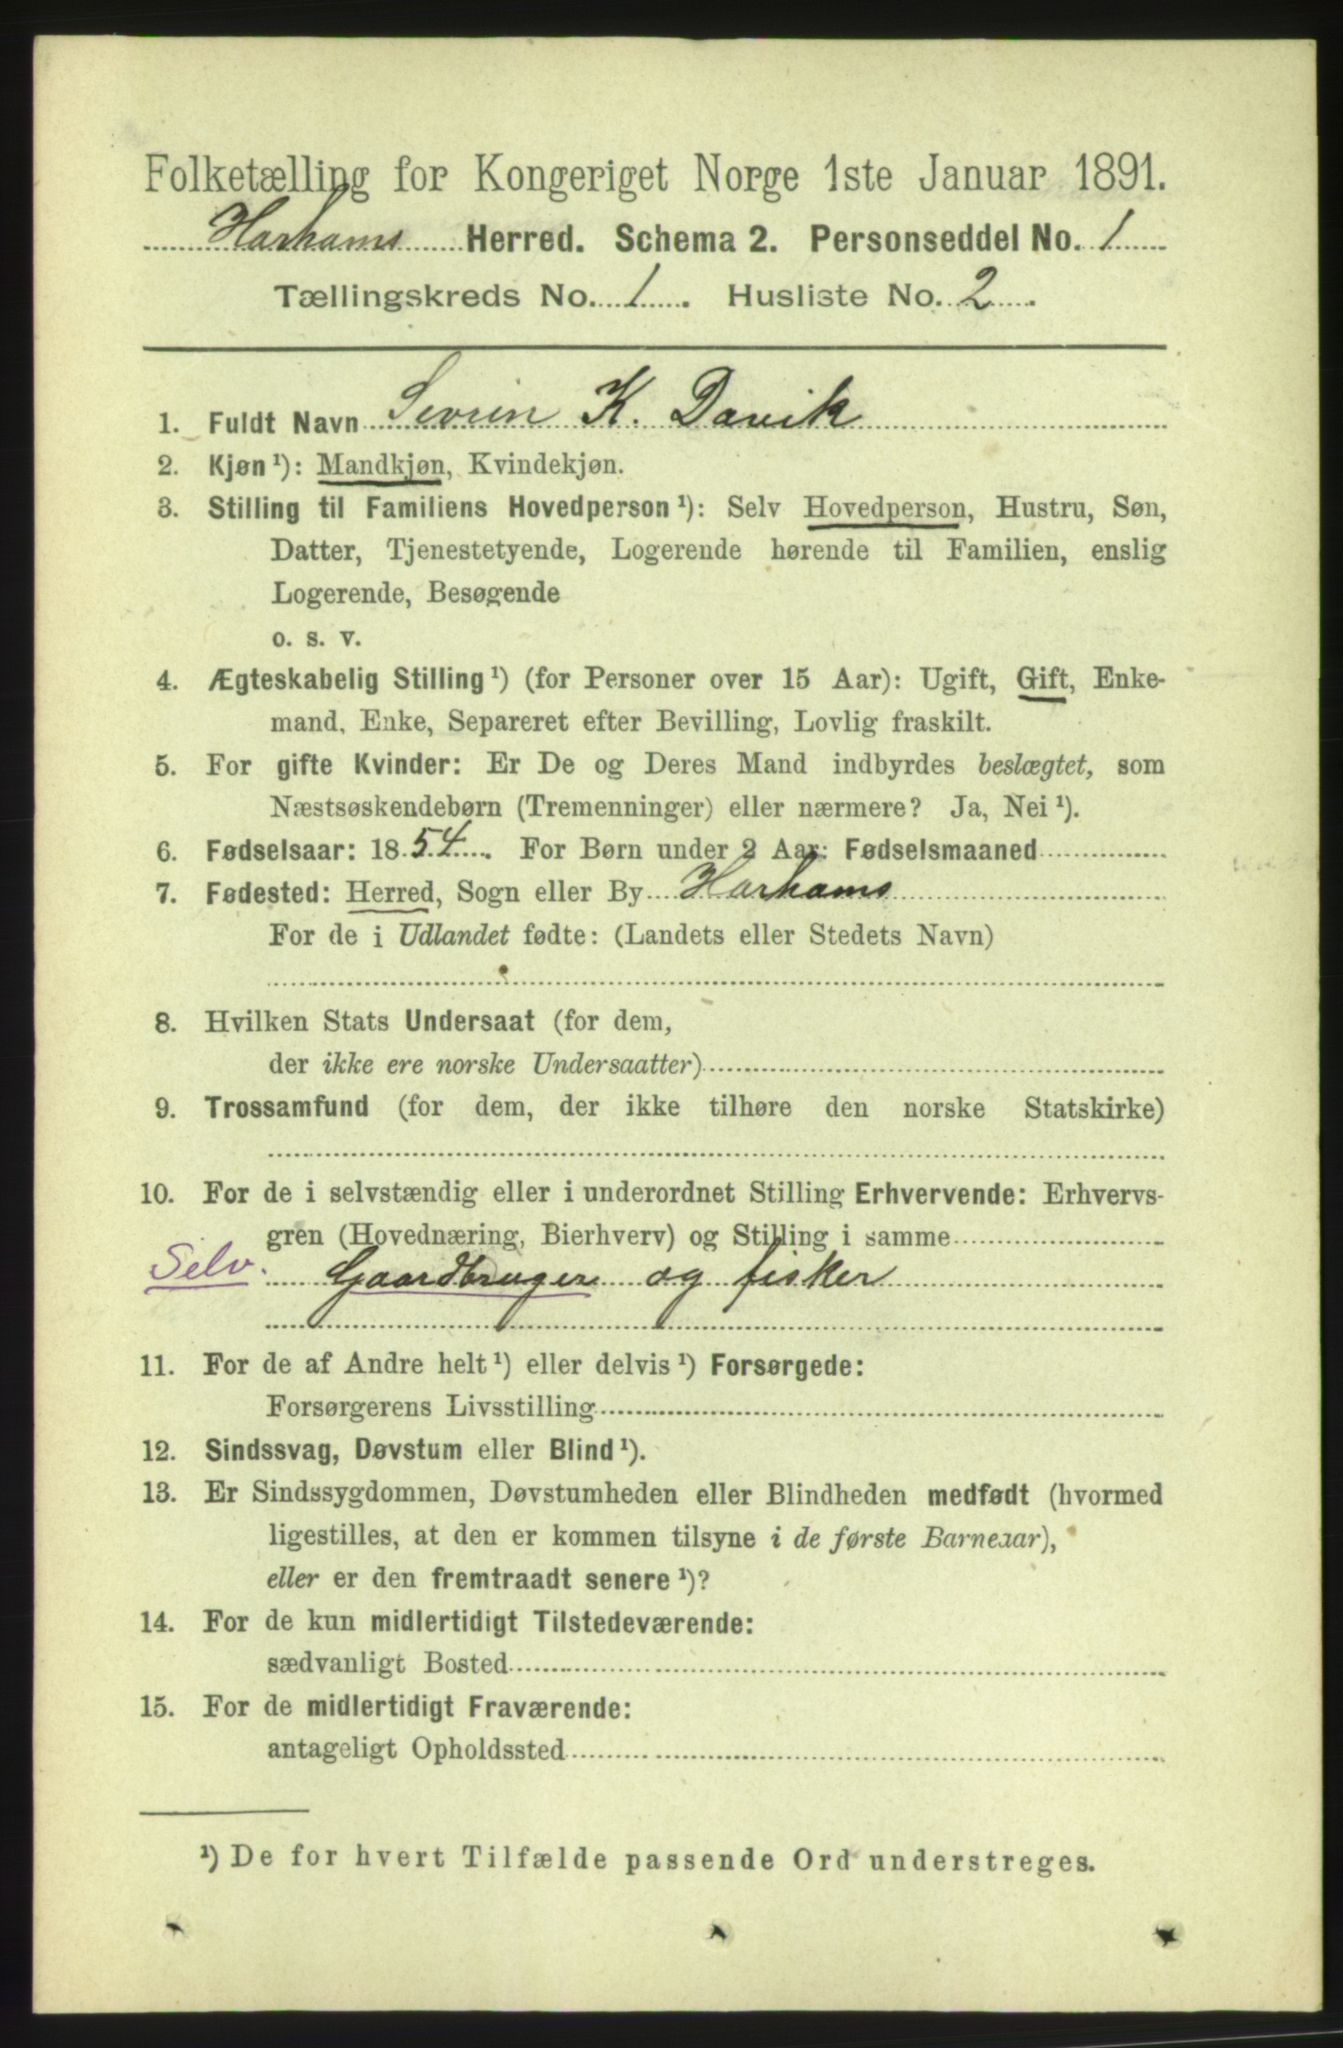 Folketælling for Kongeriget Norge 1ste Januar 1891.
Harhams Herred. Schema 2. Personseddel No. 1
Tællingskreds No. 1. Husliste No. 2.
1. Fuldt Navn Sivrin K. Davik
2. Kjøn ¹): Mandkjøn, Kvindekjøn.
3. Stilling til Familiens Hovedperson ¹): Selv Hovedperson, Hustru, Søn,
Datter, Tjenestetyende, Logerende hørende til Familien, enslig
Logerende, Besøgende
o. s. v.
4. Ægteskabelig Stilling ¹) (for Personer over 15 Aar): Ugift, Gift, Enke-
mand, Enke, Separeret efter Bevilling, Lovlig fraskilt.
5. For gifte Kvinder: Er De og Deres Mand indbyrdes beslægtet, som
Næstsøskendebørn (Tremenninger) eller nærmere? Ja, Nei ¹).
6. Fødselsaar: 1854. For Børn under 2 Aar: Fødselsmaaned
7. Fødested: Herred, Sogn eller By Harhams
For de i Udlandet fødte: (Landets eller Stedets Navn)
8. Hvilken Stats Undersaat (for dem,
der ikke ere norske Undersaatter)
9. Trossamfund (for dem, der ikke tilhøre den norske Statskirke)
10. For de i selvstændig eller i underordnet Stilling Erhvervende: Erhvervs-
gren (Hovednæring, Bierhverv) og Stilling i samme
Selv. Gaardbruger og fisker
11. For de af Andre helt ¹) eller delvis ¹) Forsørgede:
Forsørgerens Livsstilling
12. Sindssvag, Døvstum eller Blind ¹).
13. Er Sindssygdommen, Døvstumheden eller Blindheden medfødt (hvormed
ligestilles, at den er kommen tilsyne i de første Barneaar),
eller er den fremtraadt senere ¹)?
14. For de kun midlertidigt Tilstedeværende:
sædvanligt Bosted
15. For de midlertidigt Fraværende:
antageligt Opholdssted
¹) De for hvert Tilfælde passende Ord understreges.